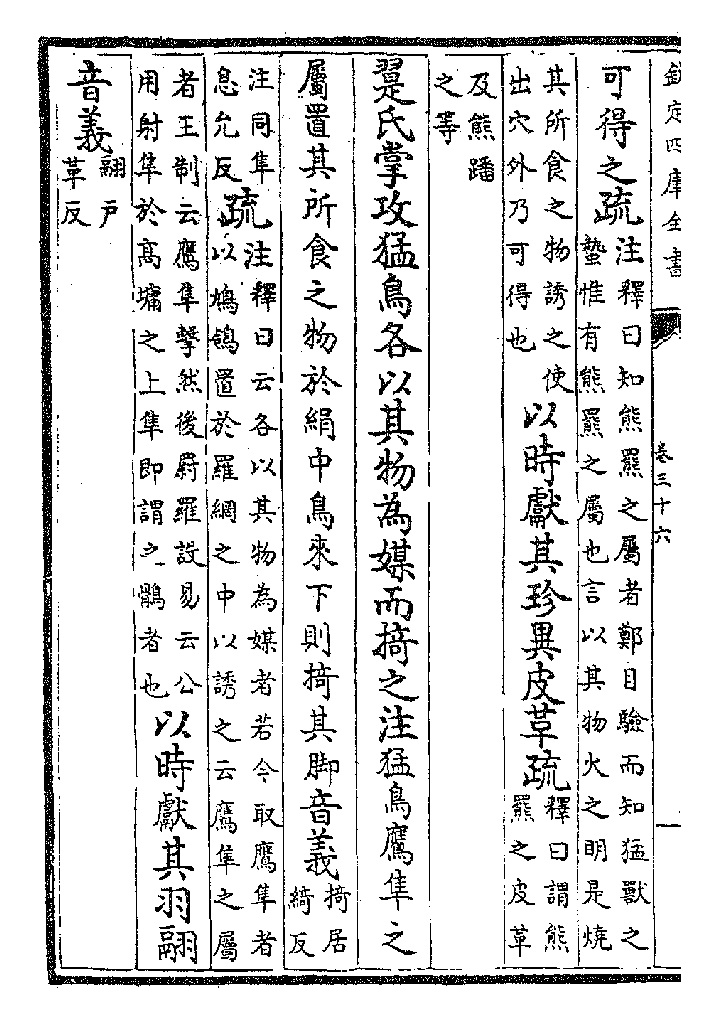 欽定四庫全書
卷三十六
一
可得之疏
注釋曰知熊羆之屬者鄭目驗而知猛獸之
蟄惟有熊羆之屬也言以其物火之明是焼
其所食之物誘之使
出穴外乃可得也
以時獻其珍異皮革疏
釋曰謂熊
羆之皮革
及熊蹯
之等
翨氏掌攻猛鳥各以其物為媒而掎之注猛鳥鷹隼之
屬置其所食之物於絹中鳥來下則掎其脚音義
掎居
綺反
注同隼
息允反
疏
注釋曰云各以其物為媒者若今取鷹隼者
以鳩鴿置於羅網之中以誘之云鷹隼之屬
者王制云鷹隼擊然後罻羅設易云公
用射隼於髙墉之上隼即謂之鶻者也
以時獻其羽翮
音義
翮戸
革反